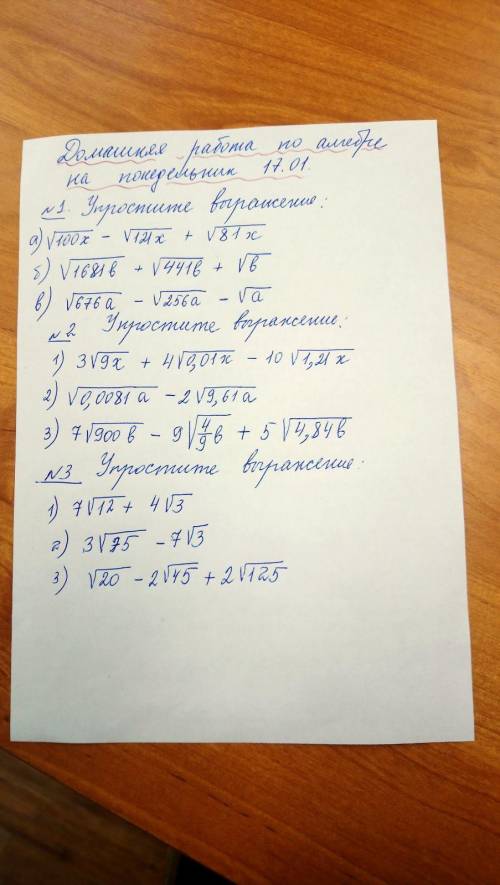 Домашняя работа по алгебре
на понедельник 17.01.
№1. Упростите выражение:
а) √100x − √121x + √81x
б) √1681в + √441в + √в
в) √676а − √256а − √а
№2 Упростите выражение:
1) 3√9x + 4√0,01x − 10√1,21x
2) √0,0081а − 2√9,61а
3) 7√900в − 9√4/9в + 5√4,84в
№3 Упростите выражение:
1) 7√12 + 4√3
2) 3√75 − 7√3
3) √20 − 2√45 + 2√125